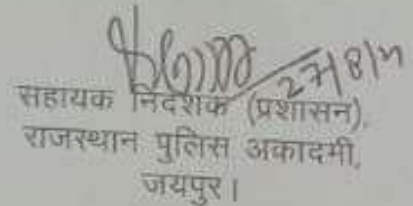 27/8/
सहायक निदेशक (प्रशासन),
राजस्थान पुलिस अकादमी,
जयपुर।